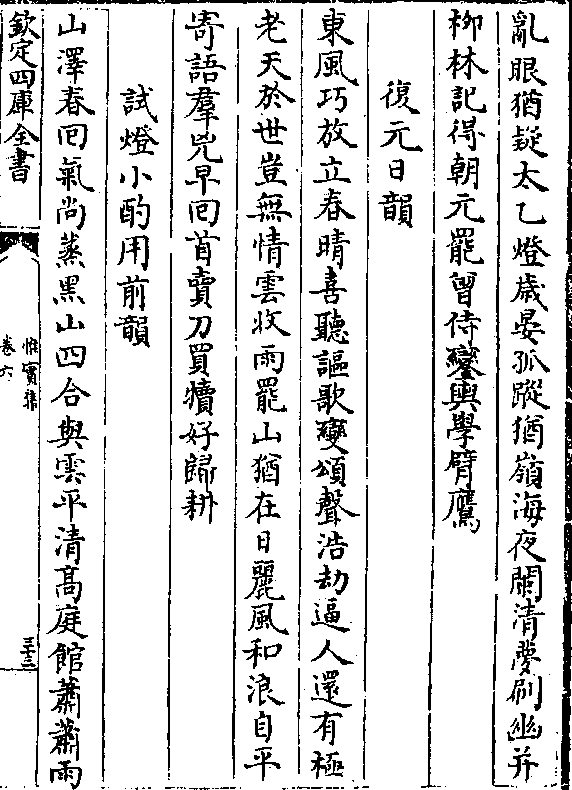 亂眼猶疑太乙燈歲晏孤蹤猶嶺海夜闌清夢刷幽并
柳林記得朝元罷曽侍鑾輿學臂鷹
復元日韻
東風巧放立春晴喜聽謳歌變頌聲浩劫逼人還有極
老天於世豈無情雲收雨罷山猶在日麗風和浪自平
寄語羣兇早囘首賣刀買犢好歸耕
試燈小酌用前韻
山澤春囘氣尚蒸黒山四合與雲平清髙庭館蕭蕭雨
欽定四庫全書
惟實集
卷六
三十三